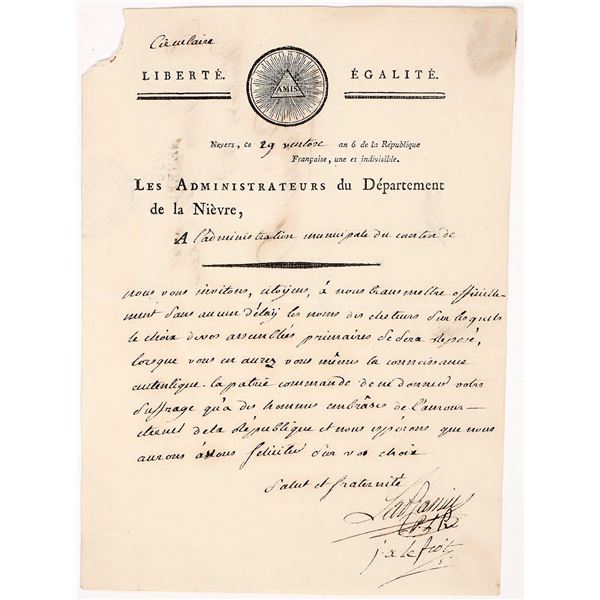 Circulaire
LIBERTÉ. ÉGALITÉ.
AMIS
Nevers, ce 29 ventose an 6 de la République
Française, une et indivisible.
Les Administrateurs du Département
de la Nièvre,
A l'administration municipale du canton de
nous vous invitons, citoyens, à nous transmettre officielle-
ment sans aucun délai les noms des electeurs sur lesquels
le choix de vos assemblées primaires se sera reposé,
lorsque vous en aurez vous mêmes la connaissance
autentique. la patrie commande de ne donner votre
suffrage qu'à des hommes embrâsés de l'amour
éternel de la République et nous espérons que nous
aurons à vous feliciter sur vos choix
Salut et fraternité